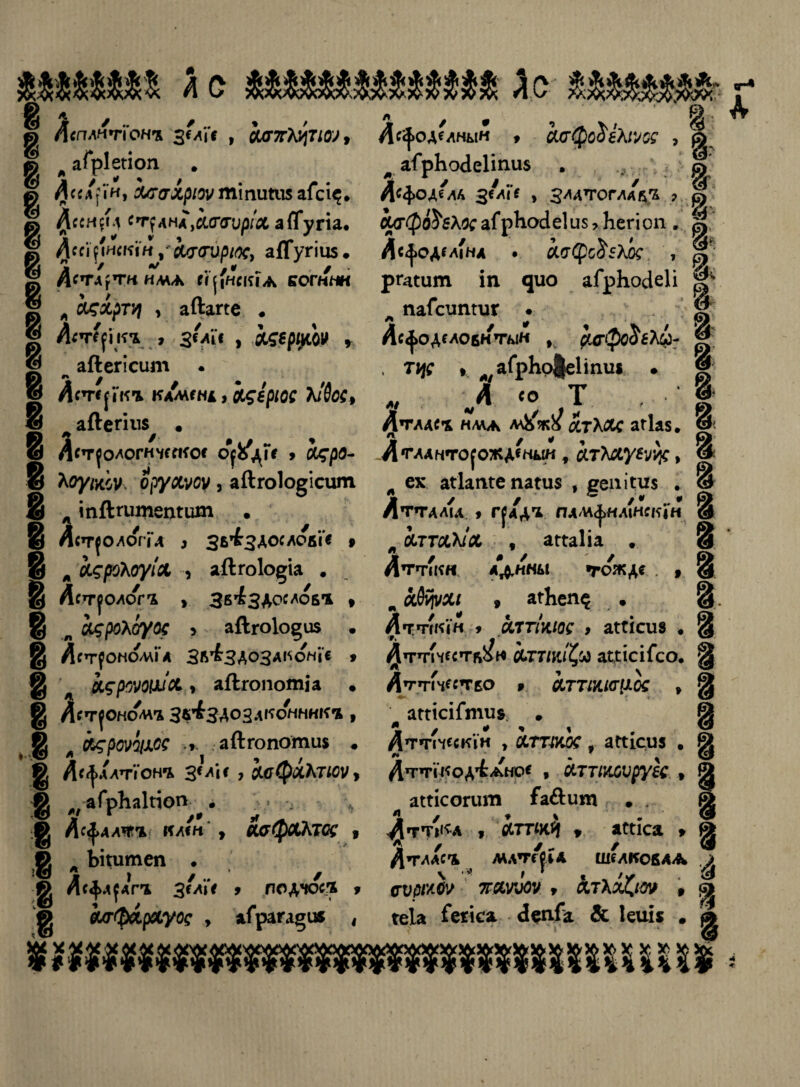 АС АС
Асплитїонъ зелїе , ἀσπλήτιον,
aspletion .
Ассарїй, ἀσσάριον minutus aſcię.
Ассирїа страна, ἀσσυρία aſſyria.
Ассирїйскїй, ἀσσύριος, aſſyrius.
Астарти имѧ сирїйскїѧ богини
ἀςάρτη , aſtarte .
Астерїкъ , зелїе , ἀςερικὸν ,
aſtericum .
Астерїкъ камень, ἀςέριος λίθος,
aſterius .
Астрологическое орꙋдїе , ἀςρο-
λογικὸν ὄργανον , aſtrologicum
inſtrumentum .
Астрологїа , звѣздословїе ,
ἀςρολογία , aſtrologia .
Астрологъ , звѣздословъ ,
ἀςρολόγος , aſtrologus .
Астрономїа звѣздозаконїе ,
ἀςρονομία , aſtronomia .
Астрономъ звѣздозаконникъ ,
ἀςρονόμος , aſtronomus .
Асфалтїонъ зелїе , ἀσφάλτιον,
aſphaltion .
Асфалтъ клей , ἄσφαλτος ,
bitumen .
Асфарагъ зелїе ,
ἀσφάραγος , aſparagus ,
Асфоделный , ἀσφοδέλινος ,
aſphodelinus .
Асфодель зелїе , златоглавъ ,
ἀσφόδελος aſphodelus, herion .
Асфоделїна . ἀσφοδελὸς ,
pratum in quo aſphodeli
naſcuntur .
Асфоделовитый , ἀσφοδελώ-
της , aſphodelinus .
А со Т
Атласъ имѧ мꙋжꙋ ἄτλας atlas.
Атланторожденый , ἀτλαγενής,
ex atlante natus , genitus .
Атталїа , градъ памфилїйскїй
ἀτταλία , attalia .
Аттїки аѳины тожде ,
ἀθῆναι , athenę .
Аттїкїй , ἀττίκιος , atticus .
Аттїчествꙋю ἀττικίζω atticiſco.
Аттїчество , ἀττικισμὸς ,
atticiſmus .
Аттїческїй , ἀττικὸς , atticus .
Аттїкодѣлное , ἀττικουργὲς ,
atticorum factum .
Аттїка , ἀττικὴ , attica ,
Атласъ матерїа шелковаѧ
συρικὸν πανύον , ἀτλάζιον ,
tela ſerica denſa & leuis .